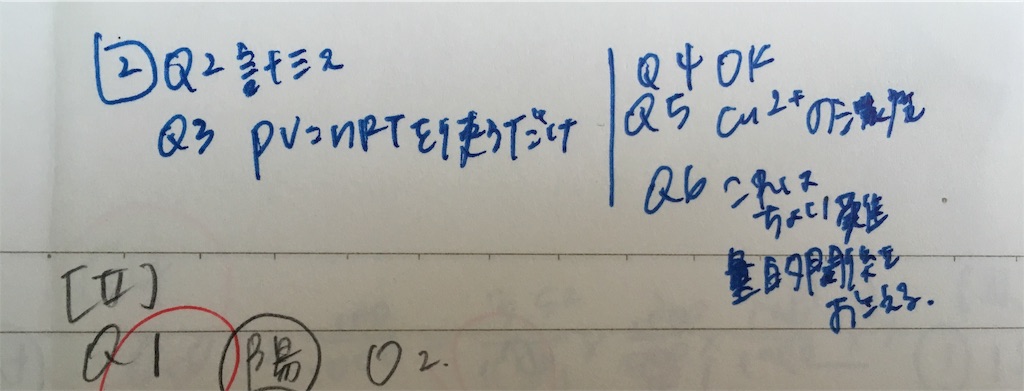 [2] Q2 計算ミス
Q3 PV=nRTを使うだけ
Q4 OK
Q5 Cu²⁺の
Q6 これは
ちょい難
量的関係を
おさえる.
[II]
Q1 陽 O2.